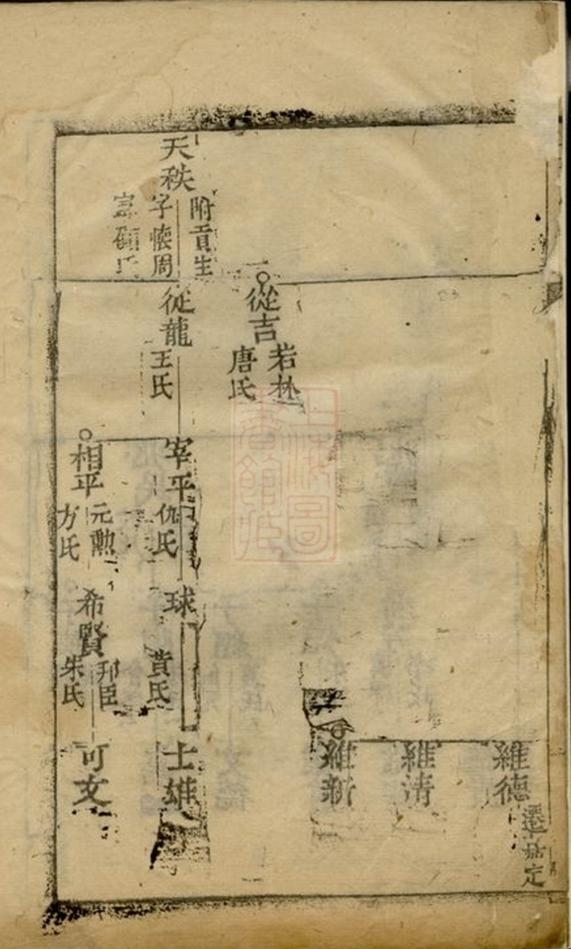 天秩
附貢生
字懷周
顧氏
從吉
若林
唐氏
從龍
王氏
宰平
仇氏
相平
元勲
方氏
球
黃氏
希賢
邦臣
朱氏
維德
遷
定
維清
維新
士雄
可文
上海圖
書館藏